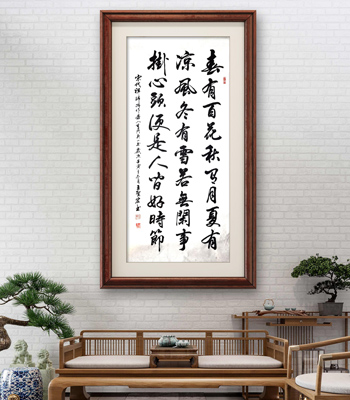 春有百花秋有月夏有
凉風冬有雪若無閑事
掛心頭便是人间好時節